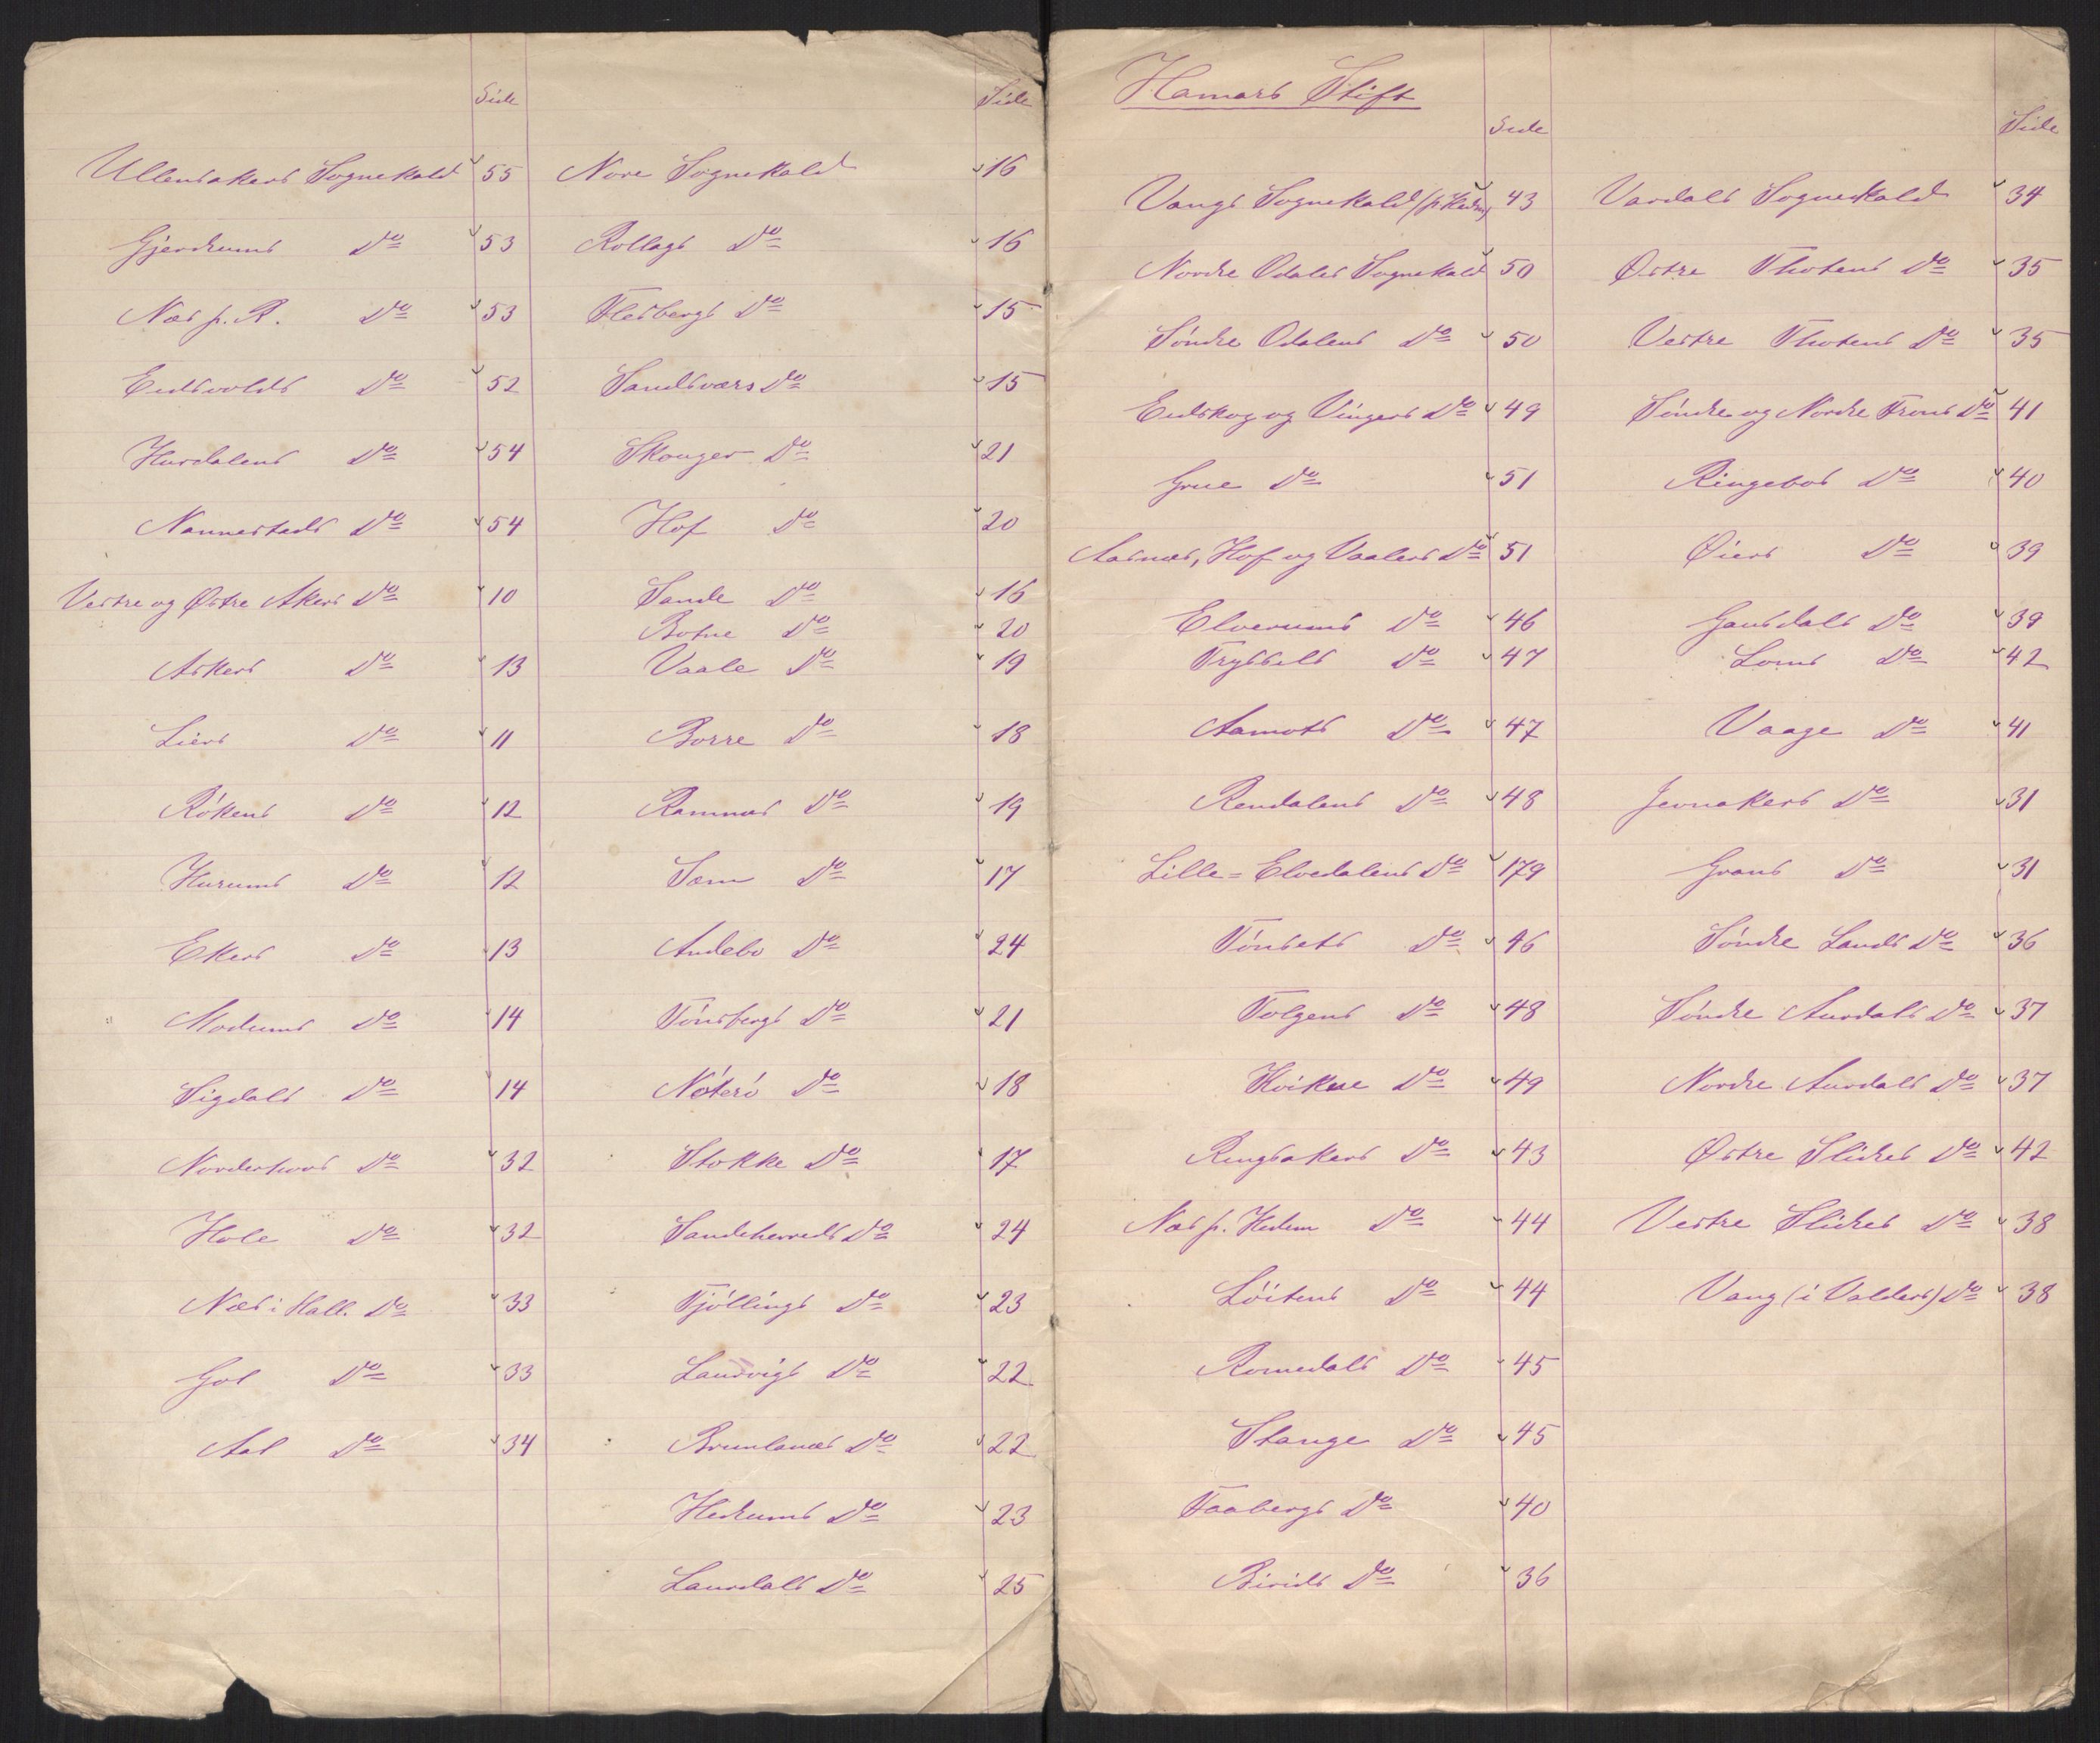 Side
Ullensakers Sognekald 55
Gjerdrums Do 53
Næs p. R. Do 53
Eidsvolds Do 52
Hurdalens Do 54
Nannestads Do 54
Vestre og Østre Akers Do 10
Askers Do 13
Liers Do 11
Rökens Do 12
Hurums Do 12
Ekers Do 13
Modums Do 14
Sigdals Do 14
Norderhovs Do 32
Hole Do 32
Næs i Hall. Do 33
Gol Do 33
Aal Do 34
Side
Nore Sognekald 16
Rollags Do 16
Flesbergs Do 15
Sandsværs Do 15
Skouger Do 21
Hof Do 20
Sande Do 16
Botne Do 20
Vaale Do 19
Borre Do 18
Ramnæs Do 19
Sem Do 17
Andebo Do 24
Tönsbergs Do 21
Nöterö Do 18
Stokke Do 17
Sandeherreds Do 24
Tjöllings Do 23
Laurvigs Do 22
Brunlanæs Do 22
Hedrums Do 23
Laurdals Do 25
Hamars Stift
Side
Vangs Sognekald (p. Hedm) 43
Nordre Odalens Sognekald 50
Söndre Odalens Do 50
Eidskog og Vingers Do 49
Grue Do 51
Aasnæs, Hof og Vaalers Do 51
Elverums Do 46
Trysils Do 47
Aamots Do 47
Rendalens Do 48
Lille=Elvedalens Do 179
Tönsets Do 46
Tolgens Do 48
Kvikne Do 49
Ringsakers Do 43
Næs p. Hedem Do 44
Löitens Do 44
Romedals Do 45
Stange Do 45
Faabergs Do 40
Birids Do 36
Side
Vardals Sognekald 34
Østre Thotens Do 35
Vestre Thotens Do 35
Söndre og Nordre Frons Do 41
Ringebos Do 40
Øiers Do 39
Gausdals Do 39
Loms Do 42
Vaage Do 41
Jevnakers Do 31
Grans Do 31
Söndre Lands Do 36
Söndre Aurdals Do 37
Nordre Aurdals Do 37
Østre Slidres Do 42
Vestre Slidres Do 38
Vang (i Valders) Do 38